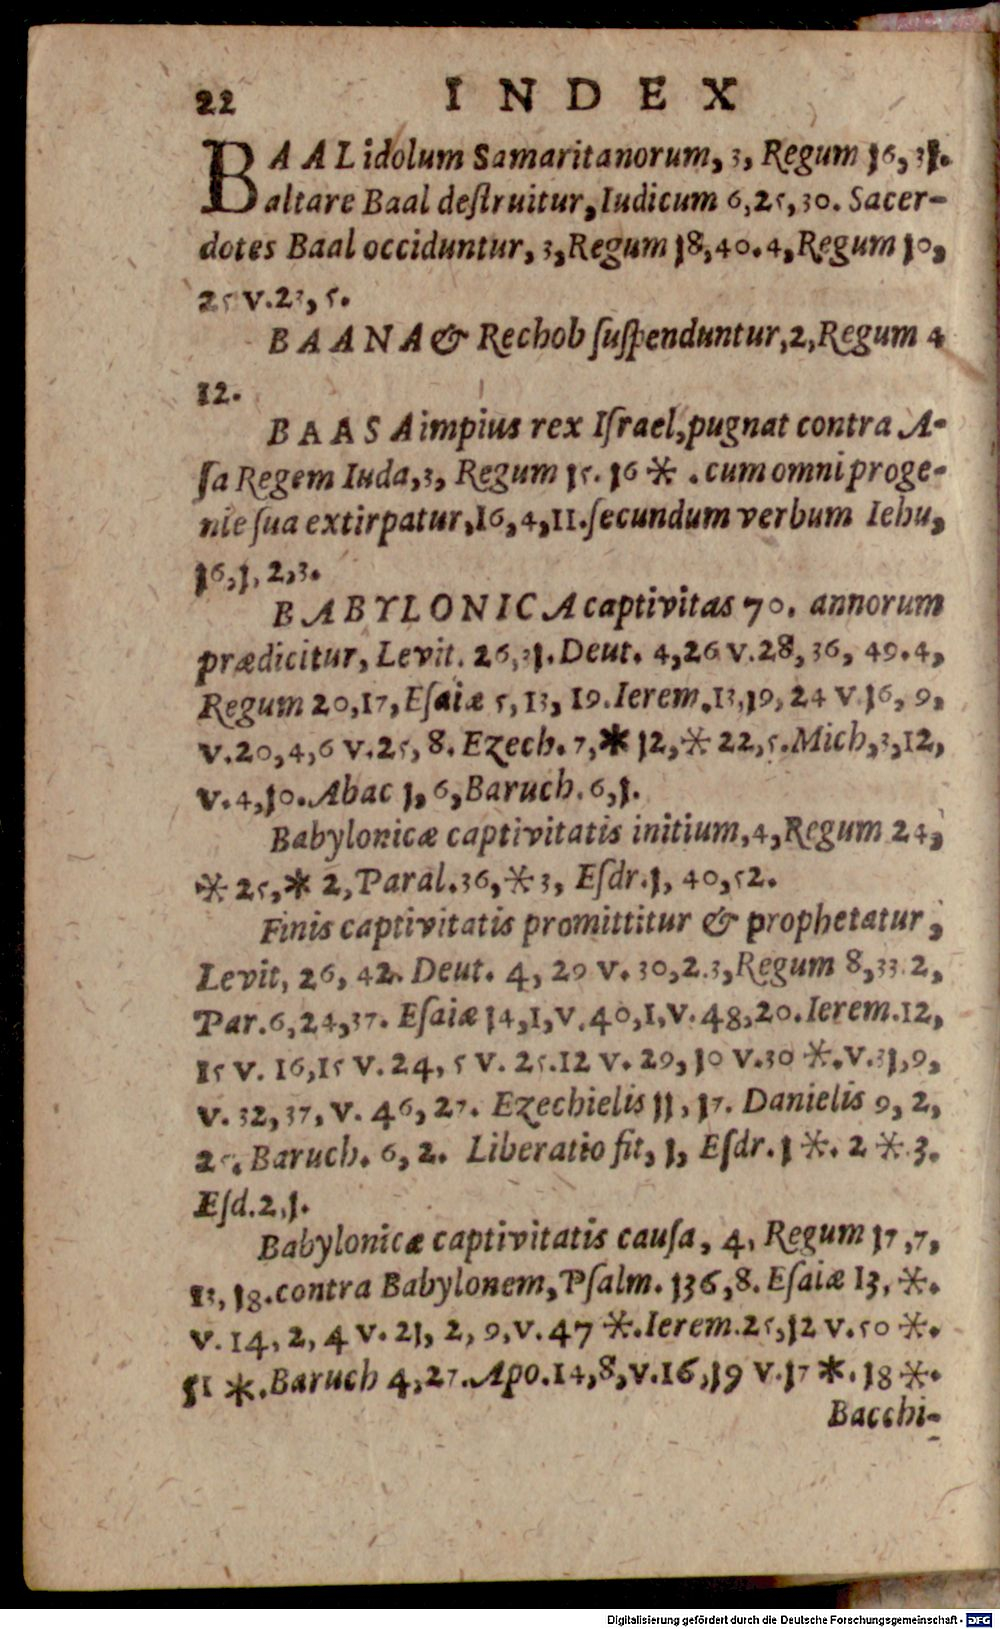 22 INDEX
BAAL idolum Samaritanorum, 3, Regum 16, 31.
altare Baal deſtruitur, Iudicum 6,25,30. Sacer-
dotes Baal occiduntur, 3, Regum 18,40. 4, Regum 10,
25 v.23, 5.
BAANA & Rechob ſuſpenduntur,2,Regum 4
12.
BAASA impius rex Iſrael,pugnat contra A-
ſa Regem Iuda,3, Regum 15. 16 * . cum omni proge-
nie ſua extirpatur,16,4,11.ſecundum verbum Iehu,
16,1, 2,3.
BABYLONICA captivitas 70. annorum
prædicitur, Levit. 26,31.Deut. 4,26 v.28, 36, 49.4,
Regum 20,17,Eſaiæ 5,13, 19.Ierem.13,19, 24 v.16, 9,
v.20,4,6 v.25, 8. Ezech. 7,* 12,* 22,5.Mich,3,12,
v.4,10.Abac 1, 6,Baruch.6,1.
Babylonicæ captivitatis initium,4,Regum 24,
* 25,* 2,Paral.36,* 3, Eſdr.1, 40,52.
Finis captivitatis promittitur & prophetatur,
Levit, 26, 42. Deut. 4, 29 v. 30,2.3,Regum 8,33.2,
Par.6,24,37. Eſaiæ 14,1,v.40,1,v.48,20.Ierem.12,
15 v. 16,15 v.24, 5 v. 25.12 v. 29,10 v.30 *.v.31,9,
v. 32,37, v. 46, 27. Ezechielis 11, 17. Danielis 9, 2,
Baruch. 6, 2. Liberatio fit, 1, Eſdr. 1 *. 2 * 3.
Eſd.2,1.
Babylonicæ captivitatis cauſa, 4, Regum 17,7,
13, 18.contra Babylonem,Pſalm. 136,8. Eſaiæ 13, *.
v. 14, 2, 4 v. 21, 2, 9,v.47 *.Ierem.25,12 v.50 *.
51 *.Baruch 4,27.Apo.14,8,v.16,19 v.17 *. 18 *.
Bacchi-
Digitalisierung gefördert durch die Deutsche Forschungsgemeinschaft - DFG